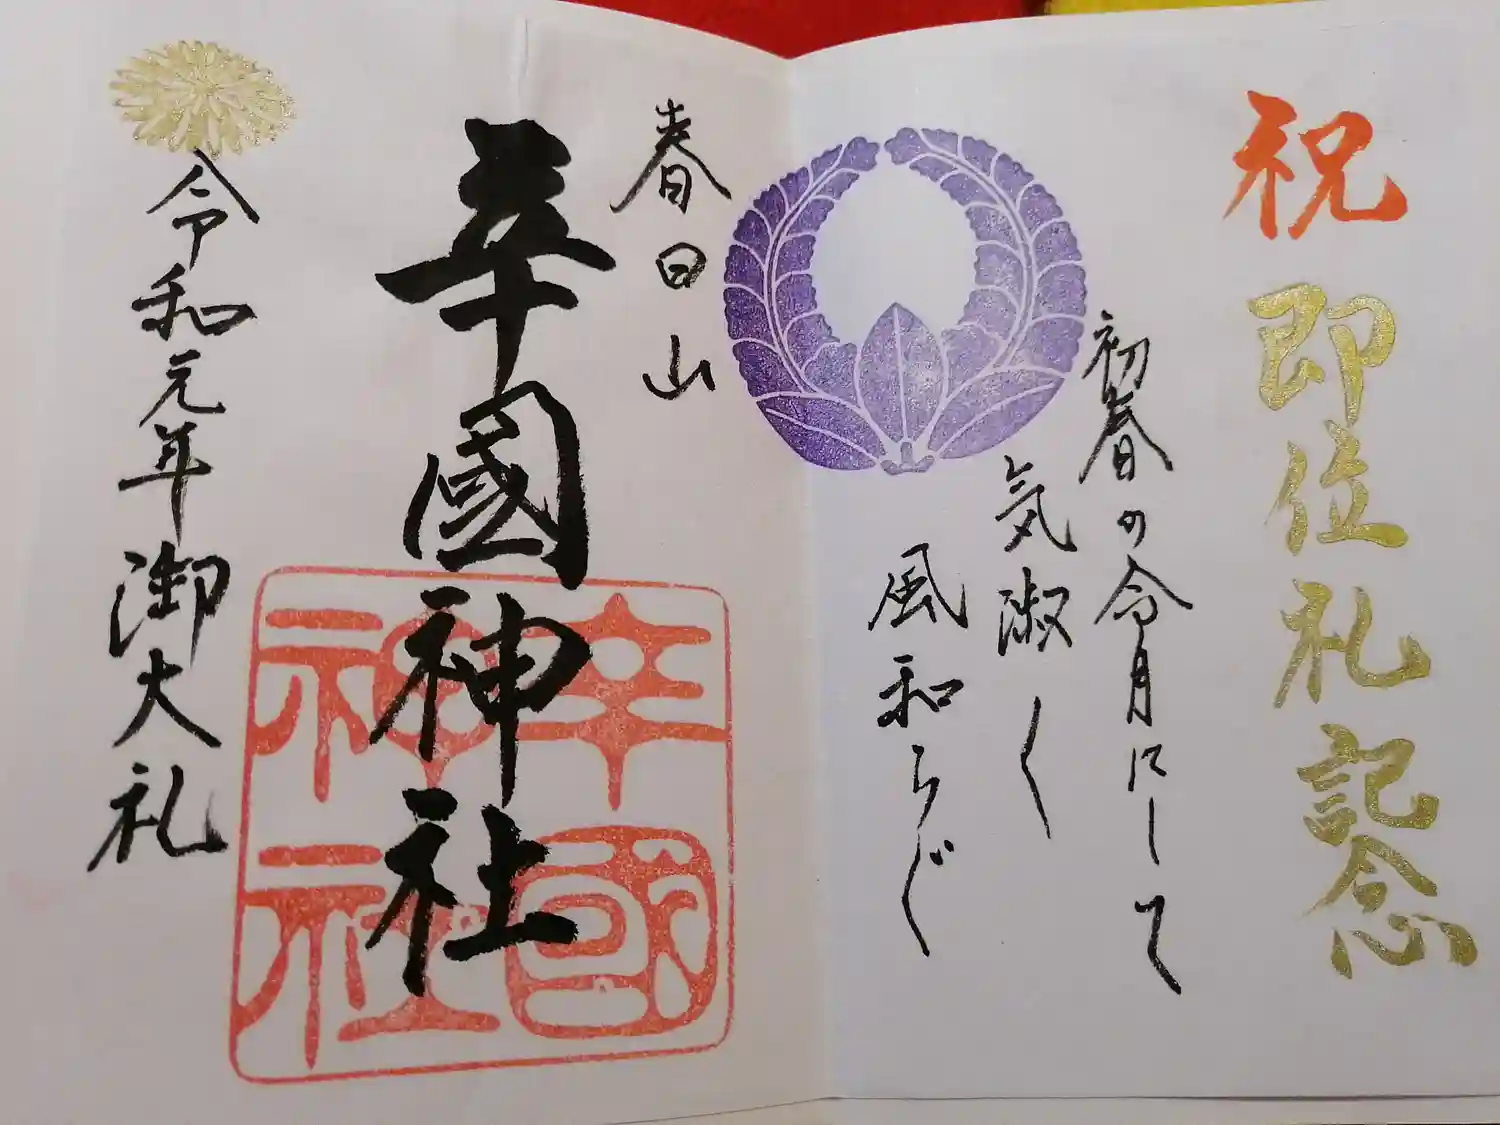 祝 即位礼記念
初春の令月にして
気淑く
風和らぐ
春日山
辛國神社
令和元年御大礼
辛國
神社